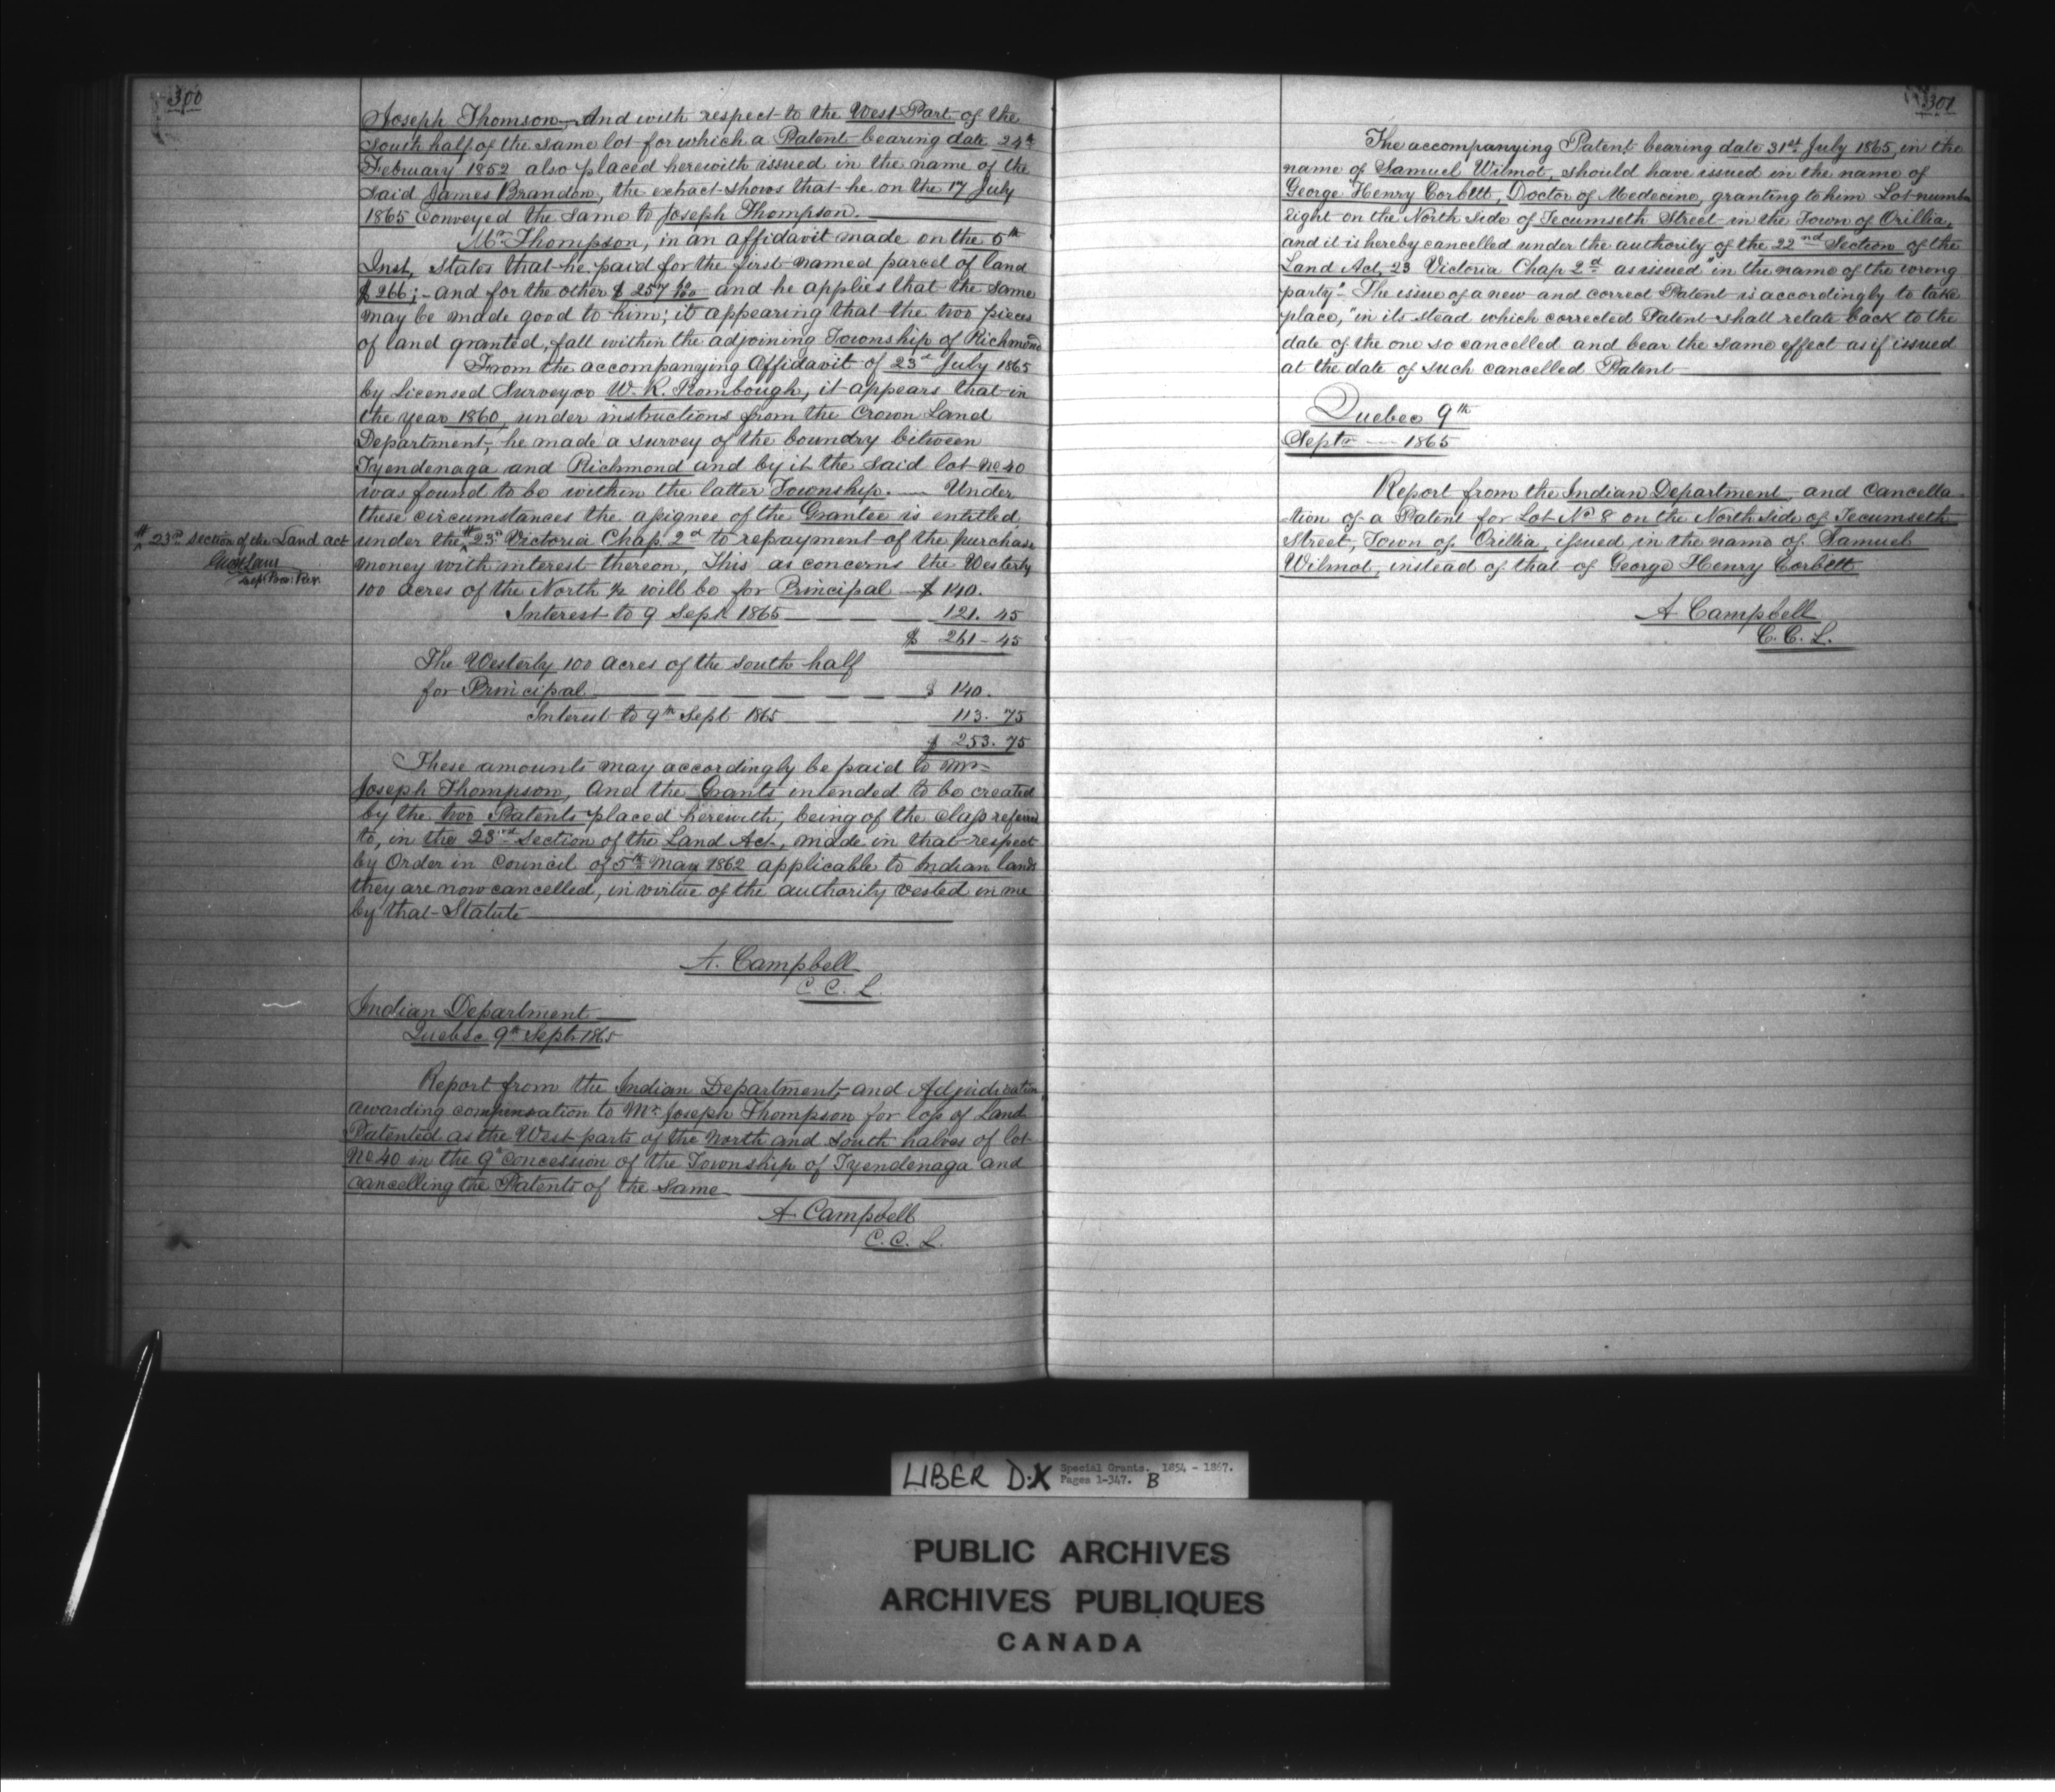 300
Joseph Thomson, And with respect to the West Part of the
South half of the same lot for which a Patent bearing date 24th
February 1852 also placed herewith issued in the name of the
said James Brandon, the extract shows that he on the 17 July
1865 Conveyed the same to Joseph Thompson.
Mr Thompson, in an affidavit made on the 5th
Inst, States that he paid for the first named parcel of land
$266; - and for the other $257 and he applies that the same
may be made good to him; it appearing that the two pieces
of land granted, fall within the adjoining Township of Richmond
From the accompanying Affidavit of 23d July 1865
by Licensed Surveyor W. R. Rombough, it appears that in
the year 1860, under instructions from the Crown Land
Department, he made a survey of the boundry between
Tyendenaga and Richmond and by it the said lot No 40
was found to be within the latter Township. — Under
these circumstances the assignee of the Grantee is entitled
# 23rd section of the Land act
Sup: Pro: Reg:
under the # 23d Victoria Chap. 2d to repayment of the purchase
money with interest thereon, This as concerns the Westerly
100 acres of the North ½ will be for Principal — $ 140.
Interest to 9 Sept 1865 — 121. 45
$ 261 - 45
The Westerly 100 acres of the south half
for Principal — $ 140.
Interest to 9th Sept 1865 — 113. 75
$ 253. 75
These amounts may accordingly be paid to Mr
Joseph Thompson, And the Grants intended to be created
by the two Patents placed herewith, being of the class referred
to, in the 23rd Section of the Land Act, made in that respect
by Order in Council of 5th May 1862 applicable to Indian lands
they are now cancelled, in virtue of the authority vested in me
by that Statute
A. Campbell
C. C. L.
Indian Department
Quebec 9th Sept 1865
Report from the Indian Department, and Adjudication
awarding compensation to Mr Joseph Thompson for loss of Land
Patented as the West parts of the North and South halves of lot
No 40 in the 9th Concession of the Township of Tyendenaga and
cancelling the Patents of the same
A Campbell
C. C. L.
301
The accompanying Patent bearing date 31st July 1865, in the
name of Samuel Wilmot, should have issued in the name of
George Henry Corbett, Doctor of Medecine, granting to him Lot number
Eight on the North side of Tecumseth Street in the Town of Orillia,
and it is hereby cancelled under the authority of the 22nd Section of the
Land Act, 23 Victoria Chap 2d as issued "in the name of the wrong
party". The issue of a new and correct Patent is accordingly to take
place, "in its stead which corrected Patent shall relate back to the
date of the one so cancelled and bear the same effect as if issued
at the date of such cancelled Patent
Quebec 9th
Septr — 1865
Report from the Indian Department, and Cancella-
tion of a Patent for Lot No 8 on the North side of Tecumseth
Street, Town of Orillia, issued in the name of Samuel
Wilmot, instead of that of George Henry Corbett
A Campbell
C. C. L.
LIBER D.X Special Grants. 1854 - 1867.
Pages 1-347. B
PUBLIC ARCHIVES
ARCHIVES PUBLIQUES
CANADA